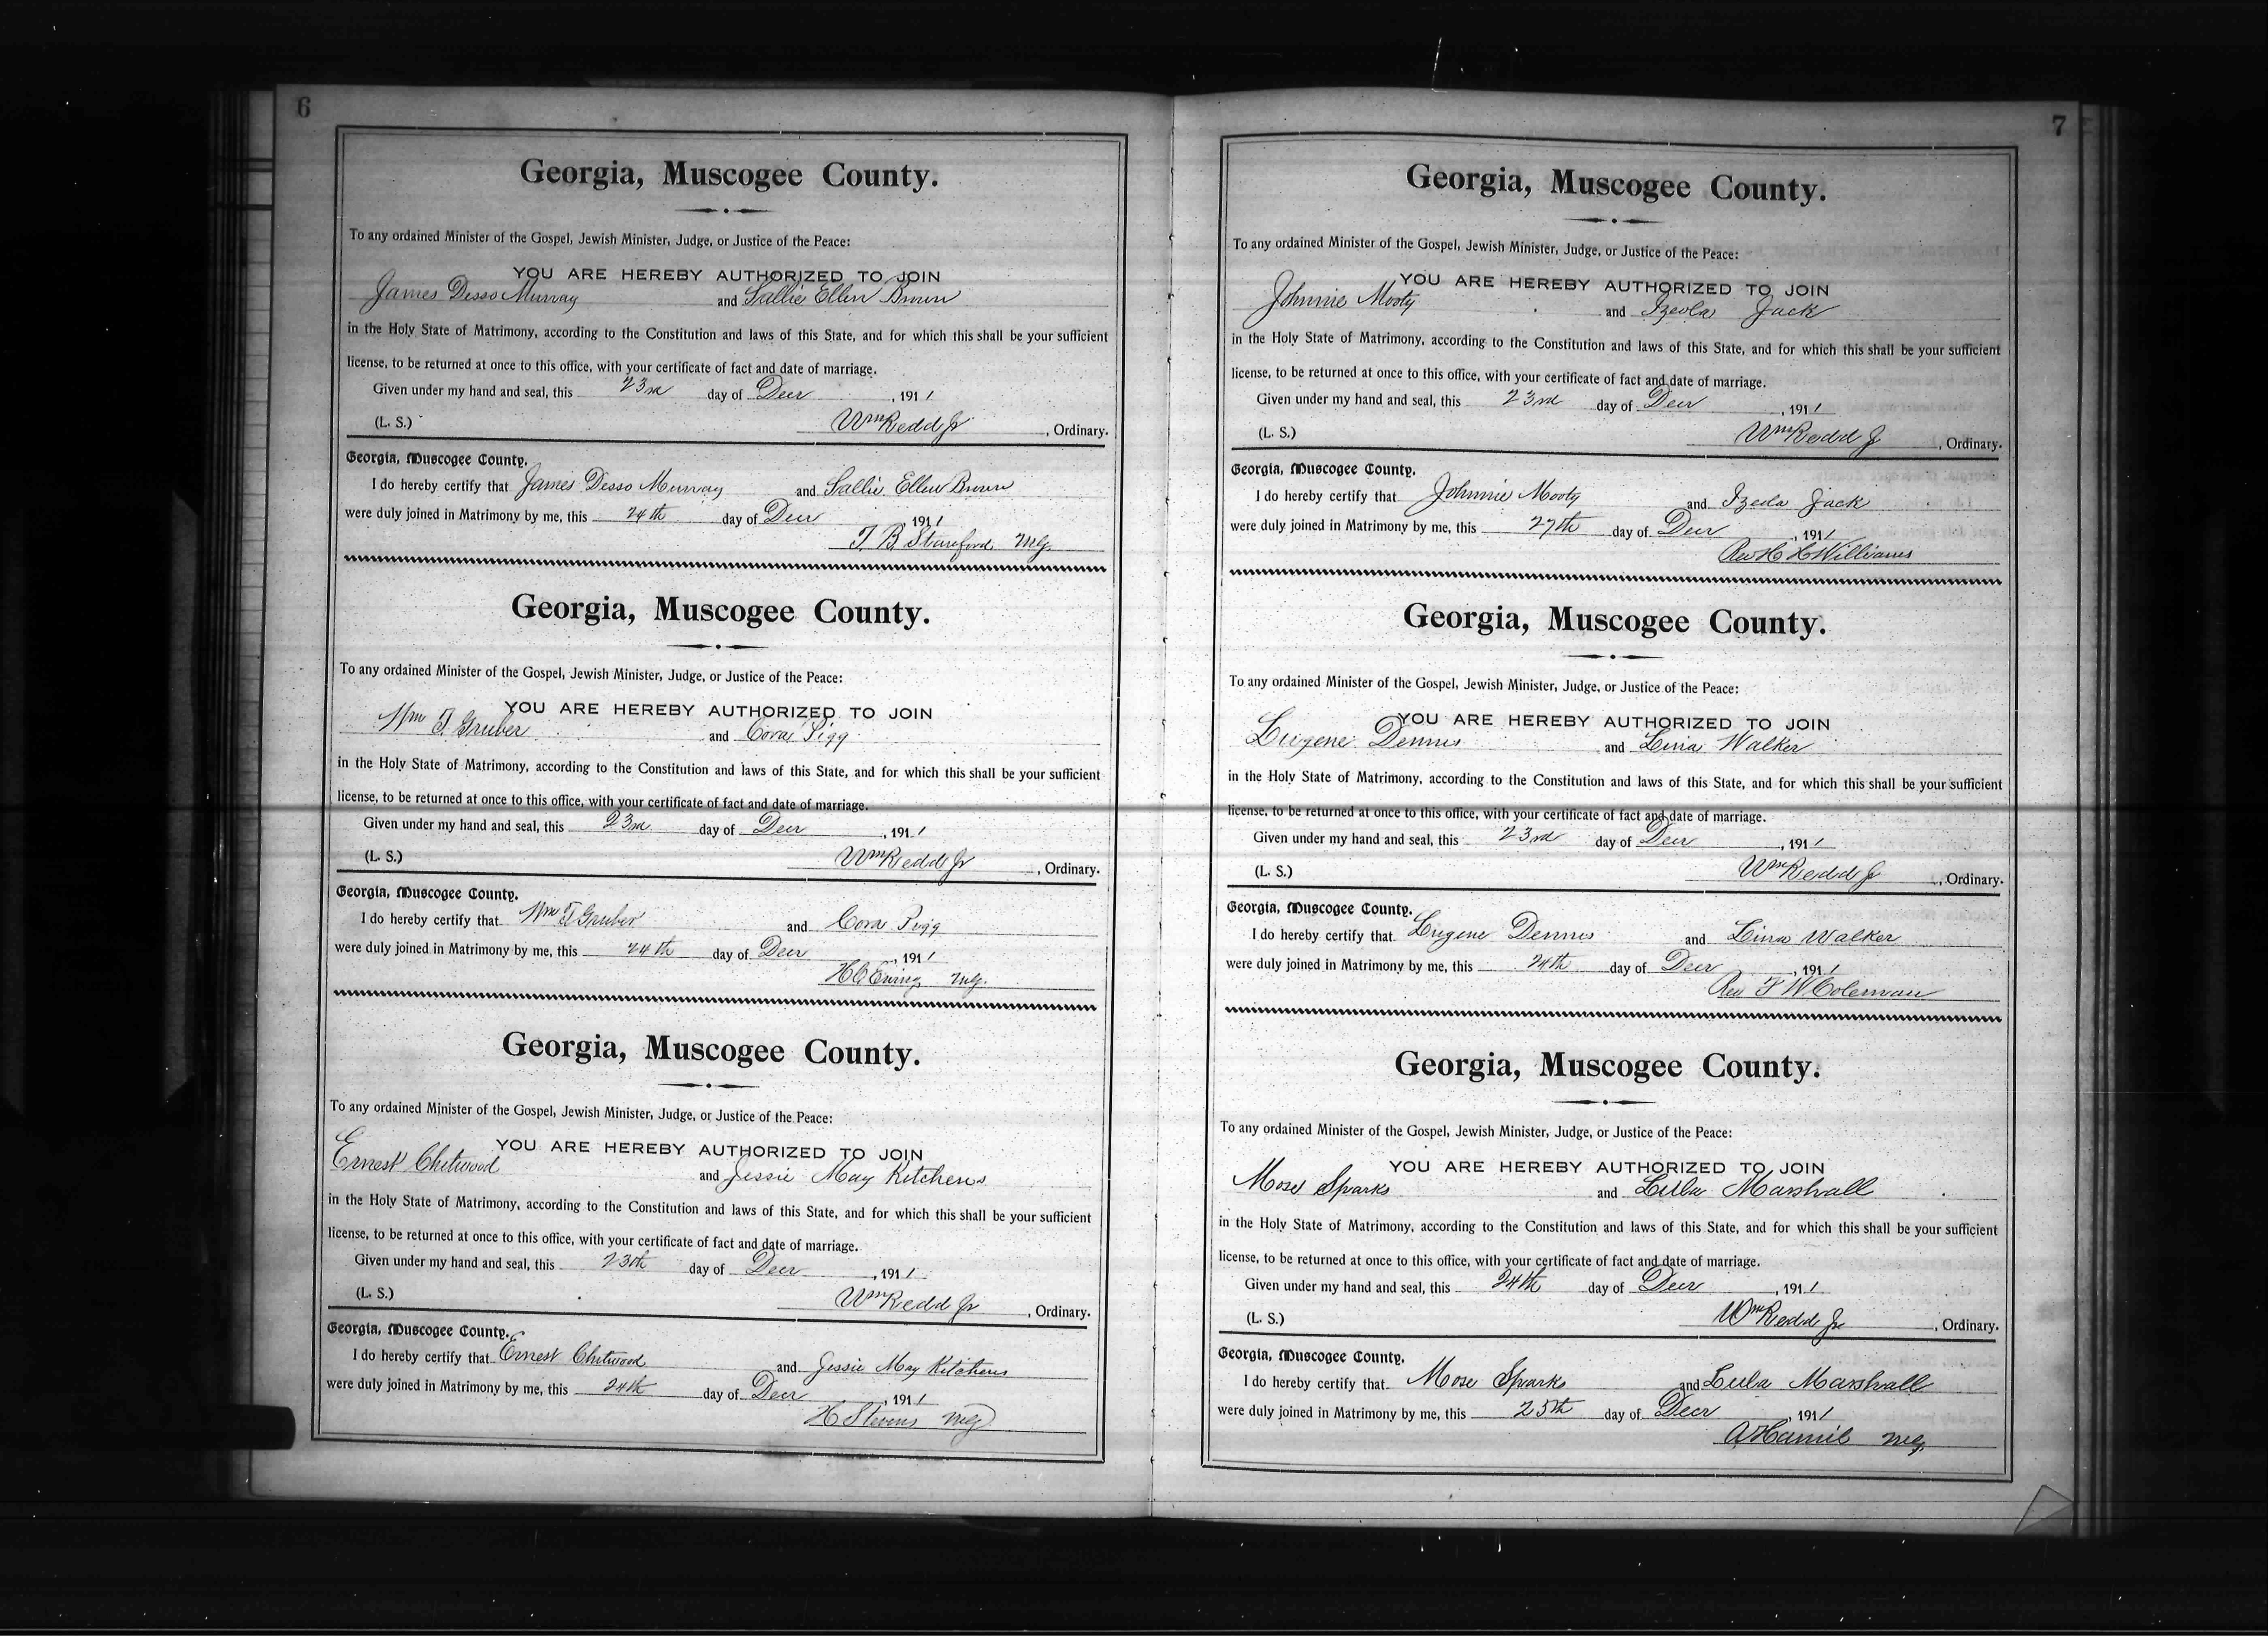 6
Georgia, Muscogee County.
To any ordained Minister of the Gospel, Jewish Minister, Judge, or Justice of the Peace:
YOU ARE HEREBY AUTHORIZED TO JOIN
James Desso Murray and Sallie Ellen Brown
in the Holy State of Matrimony, according to the Constitution and laws of this State, and for which this shall be your sufficient
license, to be returned at once to this office, with your certificate of fact and date of marriage.
Given under my hand and seal, this 23rd day of Decr, 1911
(L. S.) Wm Redd Jr, Ordinary.
Georgia, Muscogee County.
I do hereby certify that James Desso Murray and Sallie Ellen Brown
were duly joined in Matrimony by me, this 24th day of Decr, 1911
T. B. Stanford Mg.
Georgia, Muscogee County.
To any ordained Minister of the Gospel, Jewish Minister, Judge, or Justice of the Peace:
YOU ARE HEREBY AUTHORIZED TO JOIN
Wm T. Gruber and Cora Pigg
in the Holy State of Matrimony, according to the Constitution and laws of this State, and for which this shall be your sufficient
license, to be returned at once to this office, with your certificate of fact and date of marriage.
Given under my hand and seal, this 23rd day of Decr, 1911
(L. S.) Wm Redd Jr, Ordinary.
Georgia, Muscogee County.
I do hereby certify that Wm T Gruber and Cora Pigg
were duly joined in Matrimony by me, this 24th day of Decr, 1911
H C Ewing Mg.
Georgia, Muscogee County.
To any ordained Minister of the Gospel, Jewish Minister, Judge, or Justice of the Peace:
YOU ARE HEREBY AUTHORIZED TO JOIN
Ernest Chitwood and Jessie May Kitchens
in the Holy State of Matrimony, according to the Constitution and laws of this State, and for which this shall be your sufficient
license, to be returned at once to this office, with your certificate of fact and date of marriage.
Given under my hand and seal, this 23th day of Decr, 1911
(L. S.) Wm Redd Jr, Ordinary.
Georgia, Muscogee County.
I do hereby certify that Ernest Chitwood and Jessie May Kitchens
were duly joined in Matrimony by me, this 24th day of Decr, 1911
H Stevens Mg
7
Georgia, Muscogee County.
To any ordained Minister of the Gospel, Jewish Minister, Judge, or Justice of the Peace:
YOU ARE HEREBY AUTHORIZED TO JOIN
Johnnie Mooty and Izeola Jack
in the Holy State of Matrimony, according to the Constitution and laws of this State, and for which this shall be your sufficient
license, to be returned at once to this office, with your certificate of fact and date of marriage.
Given under my hand and seal, this 23rd day of Decr, 1911
(L. S.) Wm Redd Jr, Ordinary.
Georgia, Muscogee County.
I do hereby certify that Johnnie Mooty and Izeola Jack
were duly joined in Matrimony by me, this 27th day of Decr, 1911
Rev H H Williams
Georgia, Muscogee County.
To any ordained Minister of the Gospel, Jewish Minister, Judge, or Justice of the Peace:
YOU ARE HEREBY AUTHORIZED TO JOIN
Eugene Dennis and Lina Walker
in the Holy State of Matrimony, according to the Constitution and laws of this State, and for which this shall be your sufficient
license, to be returned at once to this office, with your certificate of fact and date of marriage.
Given under my hand and seal, this 23rd day of Decr, 1911
(L. S.) Wm Redd Jr, Ordinary.
Georgia, Muscogee County.
I do hereby certify that Eugene Dennis and Lina Walker
were duly joined in Matrimony by me, this 24th day of Decr, 1911
Rev F W Coleman
Georgia, Muscogee County.
To any ordained Minister of the Gospel, Jewish Minister, Judge, or Justice of the Peace:
YOU ARE HEREBY AUTHORIZED TO JOIN
Mose Sparks and Lula Marshall
in the Holy State of Matrimony, according to the Constitution and laws of this State, and for which this shall be your sufficient
license, to be returned at once to this office, with your certificate of fact and date of marriage.
Given under my hand and seal, this 24th day of Decr, 1911
(L. S.) Wm Redd Jr, Ordinary.
Georgia, Muscogee County.
I do hereby certify that Mose Sparks and Lula Marshall
were duly joined in Matrimony by me, this 25th day of Decr, 1911
A Hamil Mg